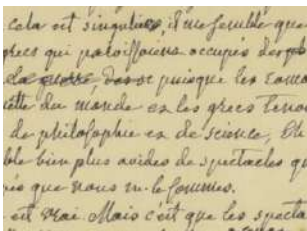 cela est singulier, il me semble que
grecs qui paroissoient occupés de
la guerre, puisque les
du monde et les grecs
de philosophie et de science, Eh
ble bien plus avides de spectacles qu
nés que nous ne le sommes.
est vrai. Mais c'est que les specta